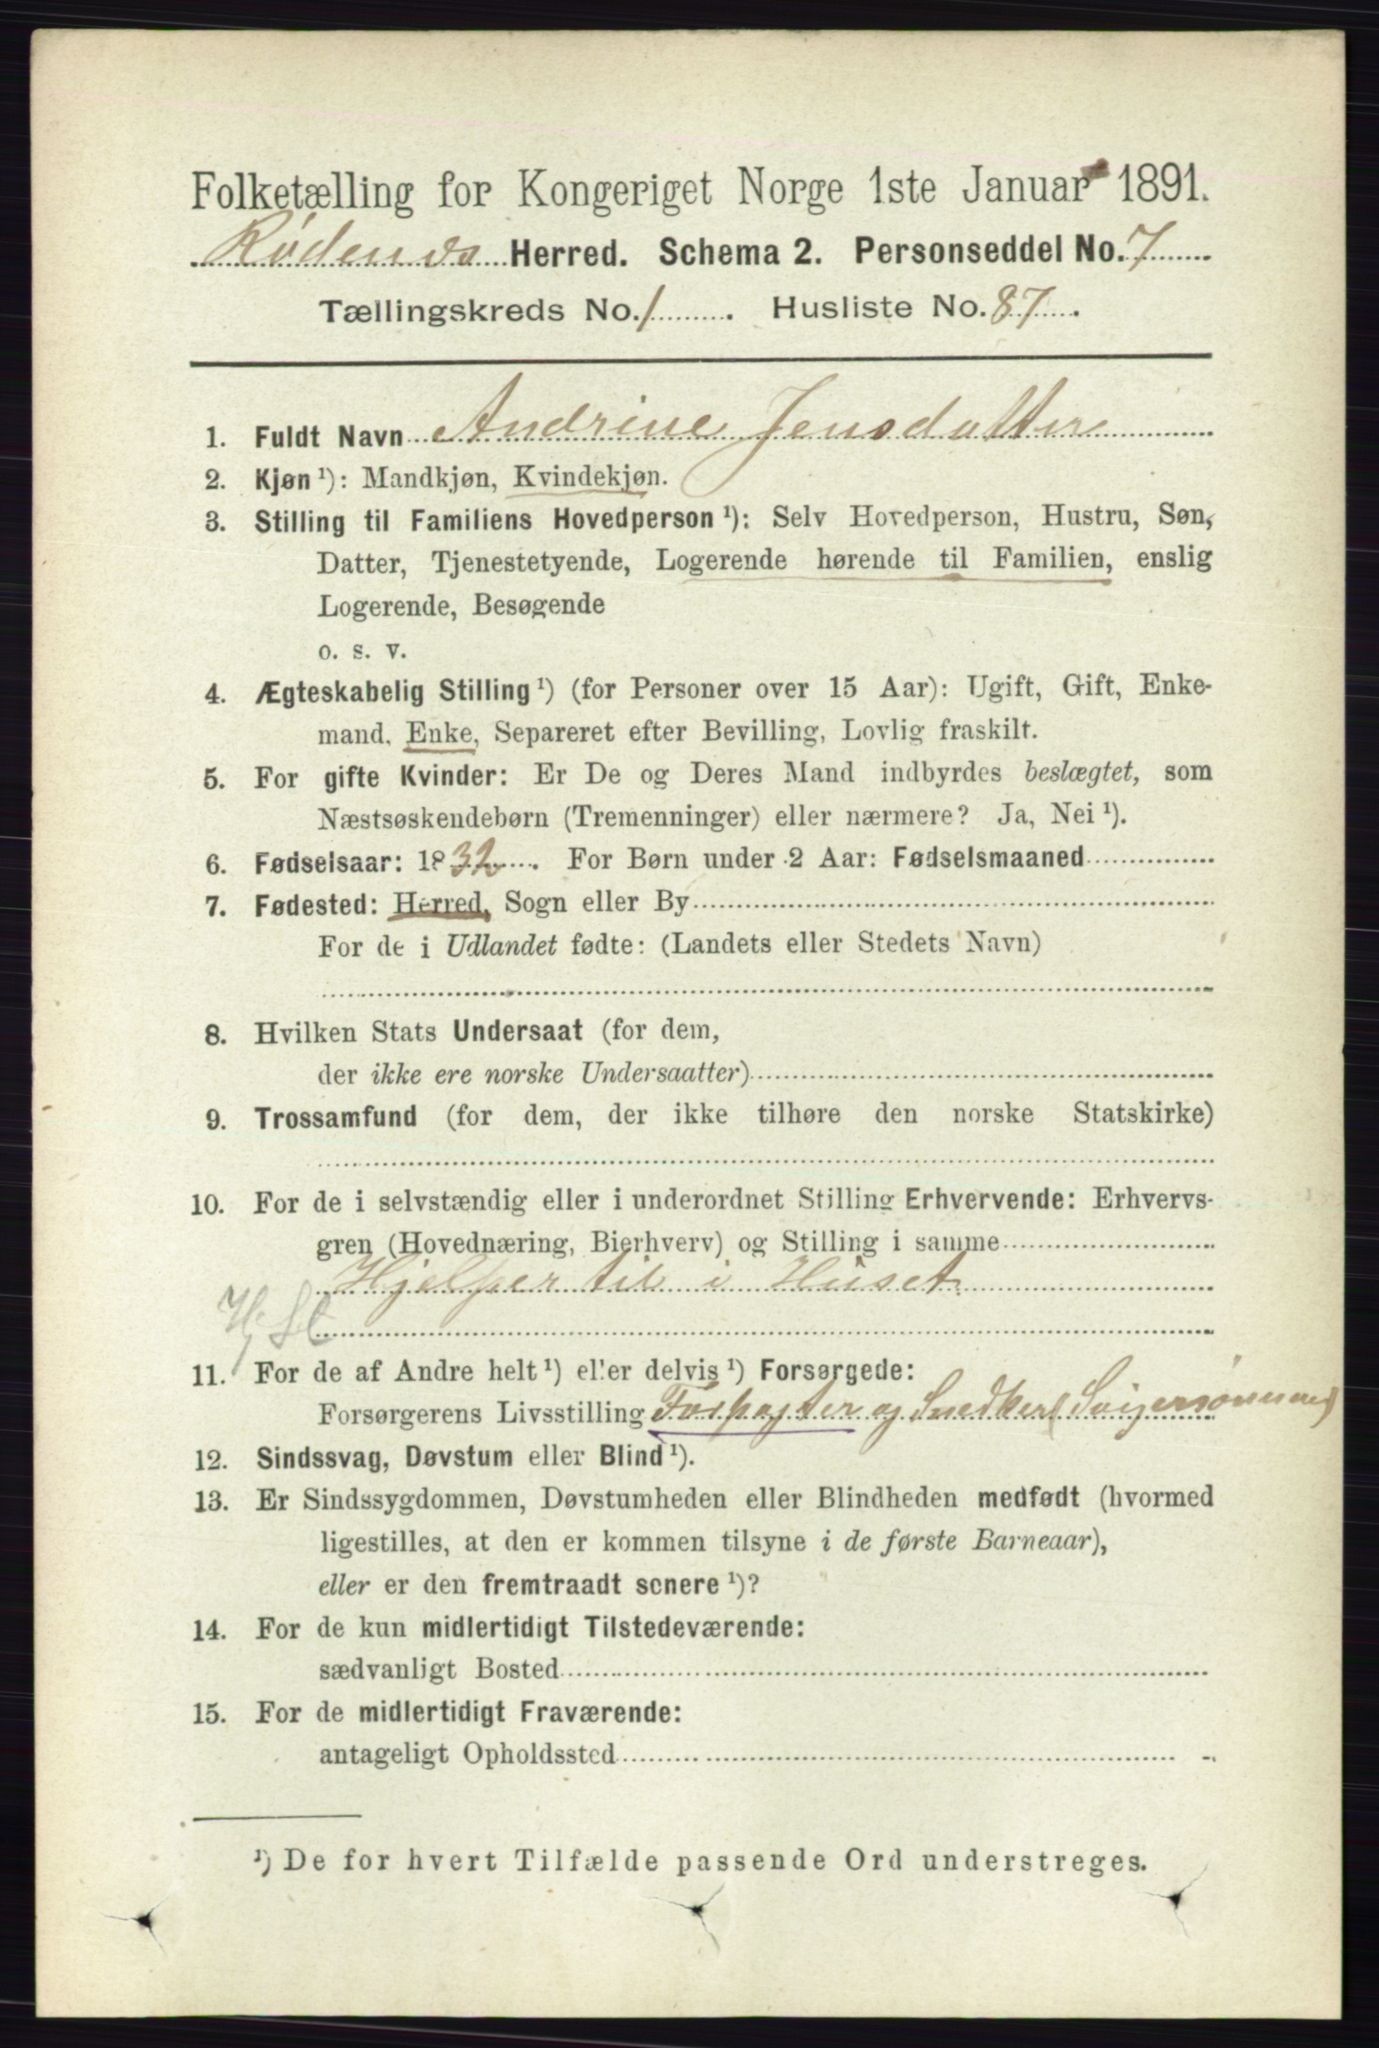 Folketælling for Kongeriget Norge 1ste Januar 1891.
Rødenes Herred. Schema 2. Personseddel No. 7
Tællingskreds No. 1. Husliste No. 87.
1. Fuldt Navn Andrine Jensdatter
2. Kjøn ¹): Mandkjøn, Kvindekjøn.
3. Stilling til Familiens Hovedperson ¹): Selv Hovedperson, Hustru, Søn,
Datter, Tjenestetyende, Logerende hørende til Familien, enslig
Logerende, Besøgende
o. s. v.
4. Ægteskabelig Stilling ¹) (for Personer over 15 Aar): Ugift, Gift, Enke-
mand, Enke, Separeret efter Bevilling, Lovlig fraskilt.
5. For gifte Kvinder: Er De og Deres Mand indbyrdes beslægtet, som
Næstsøskendebørn (Tremenninger) eller nærmere? Ja, Nei ¹).
6. Fødselsaar: 1832. For Børn under 2 Aar: Fødselsmaaned
7. Fødested: Herred, Sogn eller By
For de i Udlandet fødte: (Landets eller Stedets Navn)
8. Hvilken Stats Undersaat (for dem,
der ikke ere norske Undersaatter)
9. Trossamfund (for dem, der ikke tilhøre den norske Statskirke)
10. For de i selvstændig eller i underordnet Stilling Erhvervende: Erhvervs-
gren (Hovednæring, Bierhverv) og Stilling i samme
Hjelper til i Huset
11. For de af Andre helt ¹) eller delvis ¹) Forsørgede:
Forsørgerens Livsstilling Forpagter og Snedker (Svigersønnen)
12. Sindssvag, Døvstum eller Blind ¹).
13. Er Sindssygdommen, Døvstumheden eller Blindheden medfødt (hvormed
ligestilles, at den er kommen tilsyne i de første Barneaar),
eller er den fremtraadt senere ¹)?
14. For de kun midlertidigt Tilstedeværende:
sædvanligt Bosted
15. For de midlertidigt Fraværende:
antageligt Opholdssted
¹) De for hvert Tilfælde passende Ord understreges.